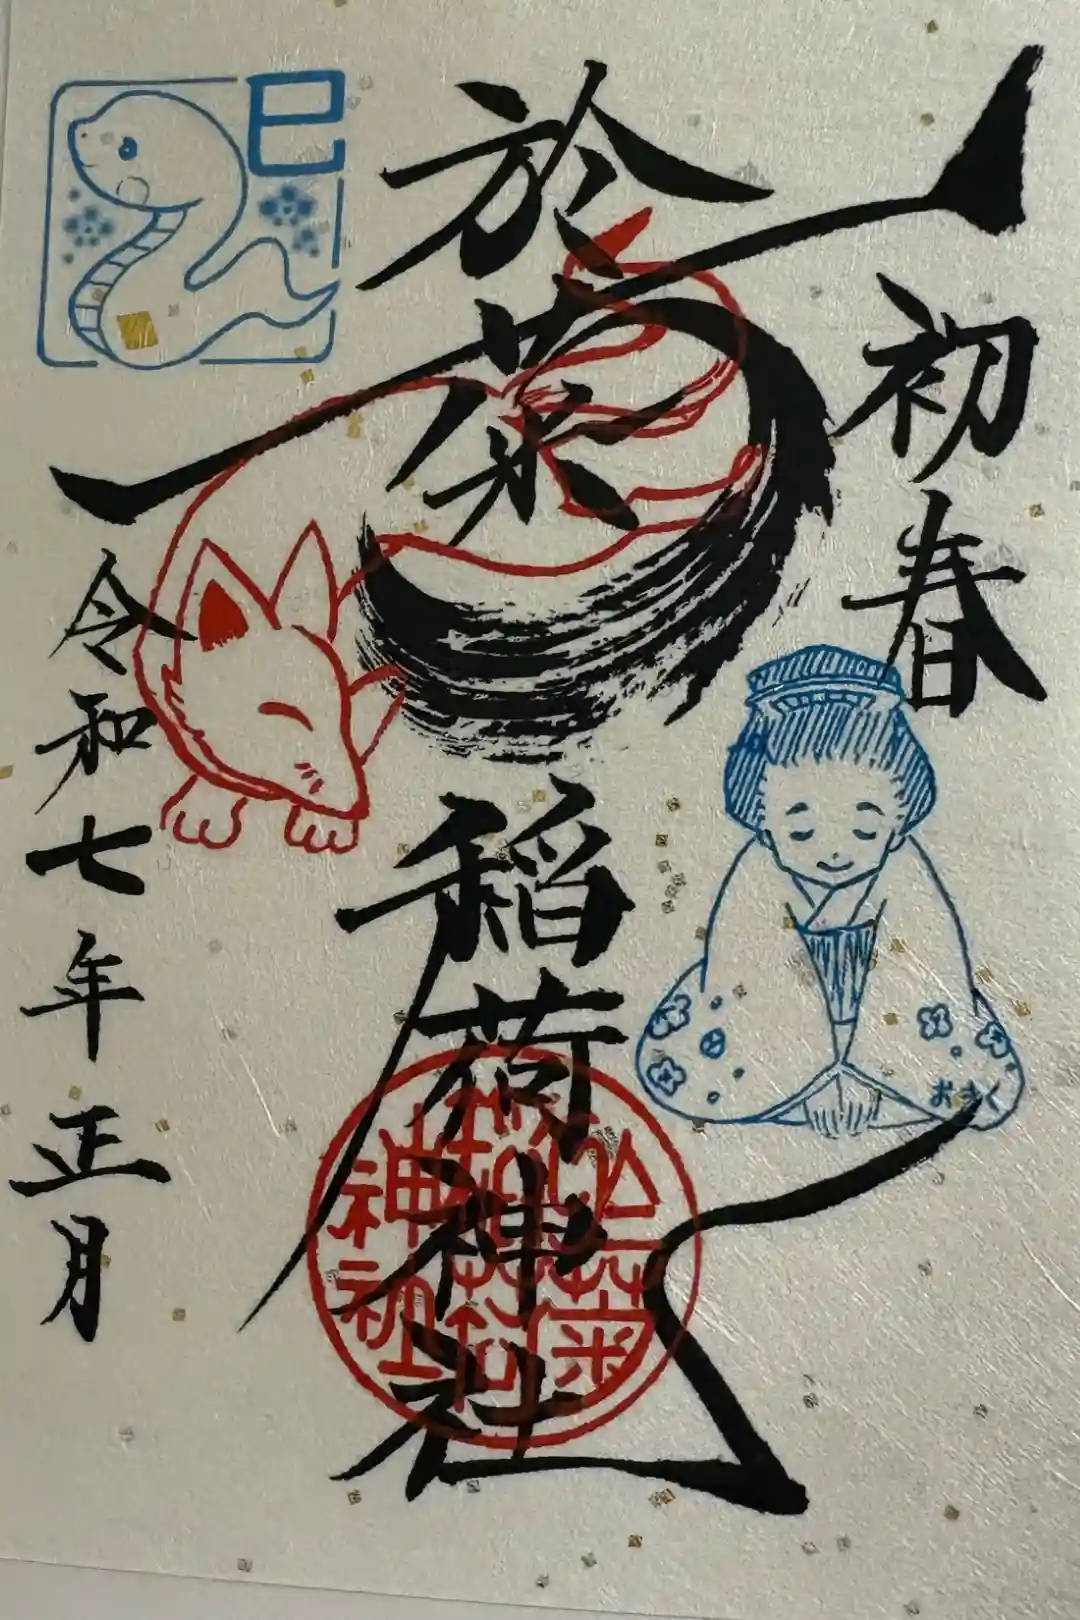 初春
於菊稲荷神社
令和七年正月
巳
おきく
於菊稲荷神社